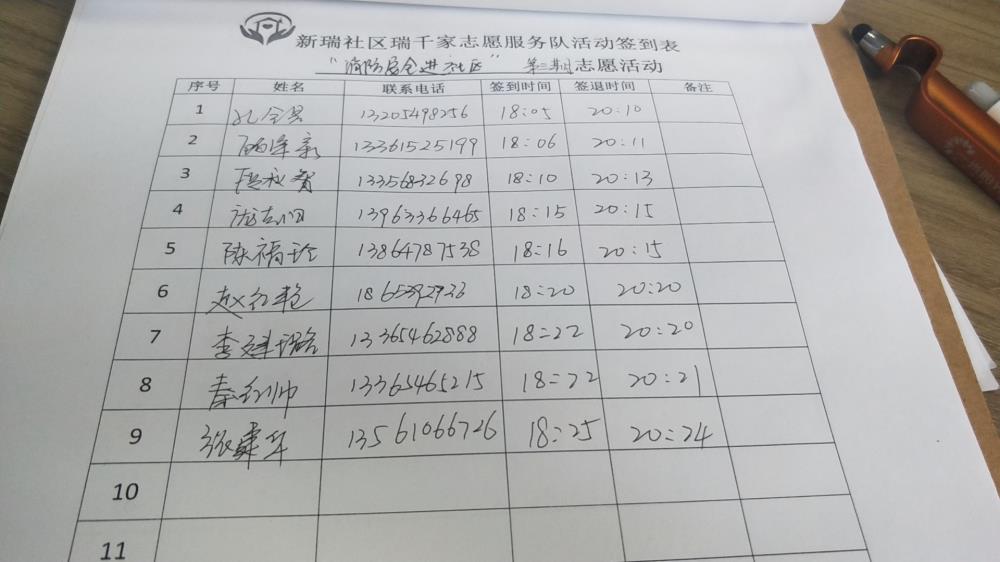 新瑞社区瑞千家志愿服务队活动签到表
"消防安全进社区" 第三期志愿活动
序号 姓名 联系电话 签到时间 签退时间 备注
1 13205498256 18:05 20:10
2 13361525199 18:06 20:11
3 13356832698 18:10 20:13
4 13963366465 18:15 20:15
5 陈福玲 13864787538 18:16 20:15
6 赵红艳 18:20 20:20
7 李建璐 13365462888 18:22 20:20
8 秦红帅 13365465215 18:22 20:21
9 张舜华 13561066726 18:25 20:24
10
11